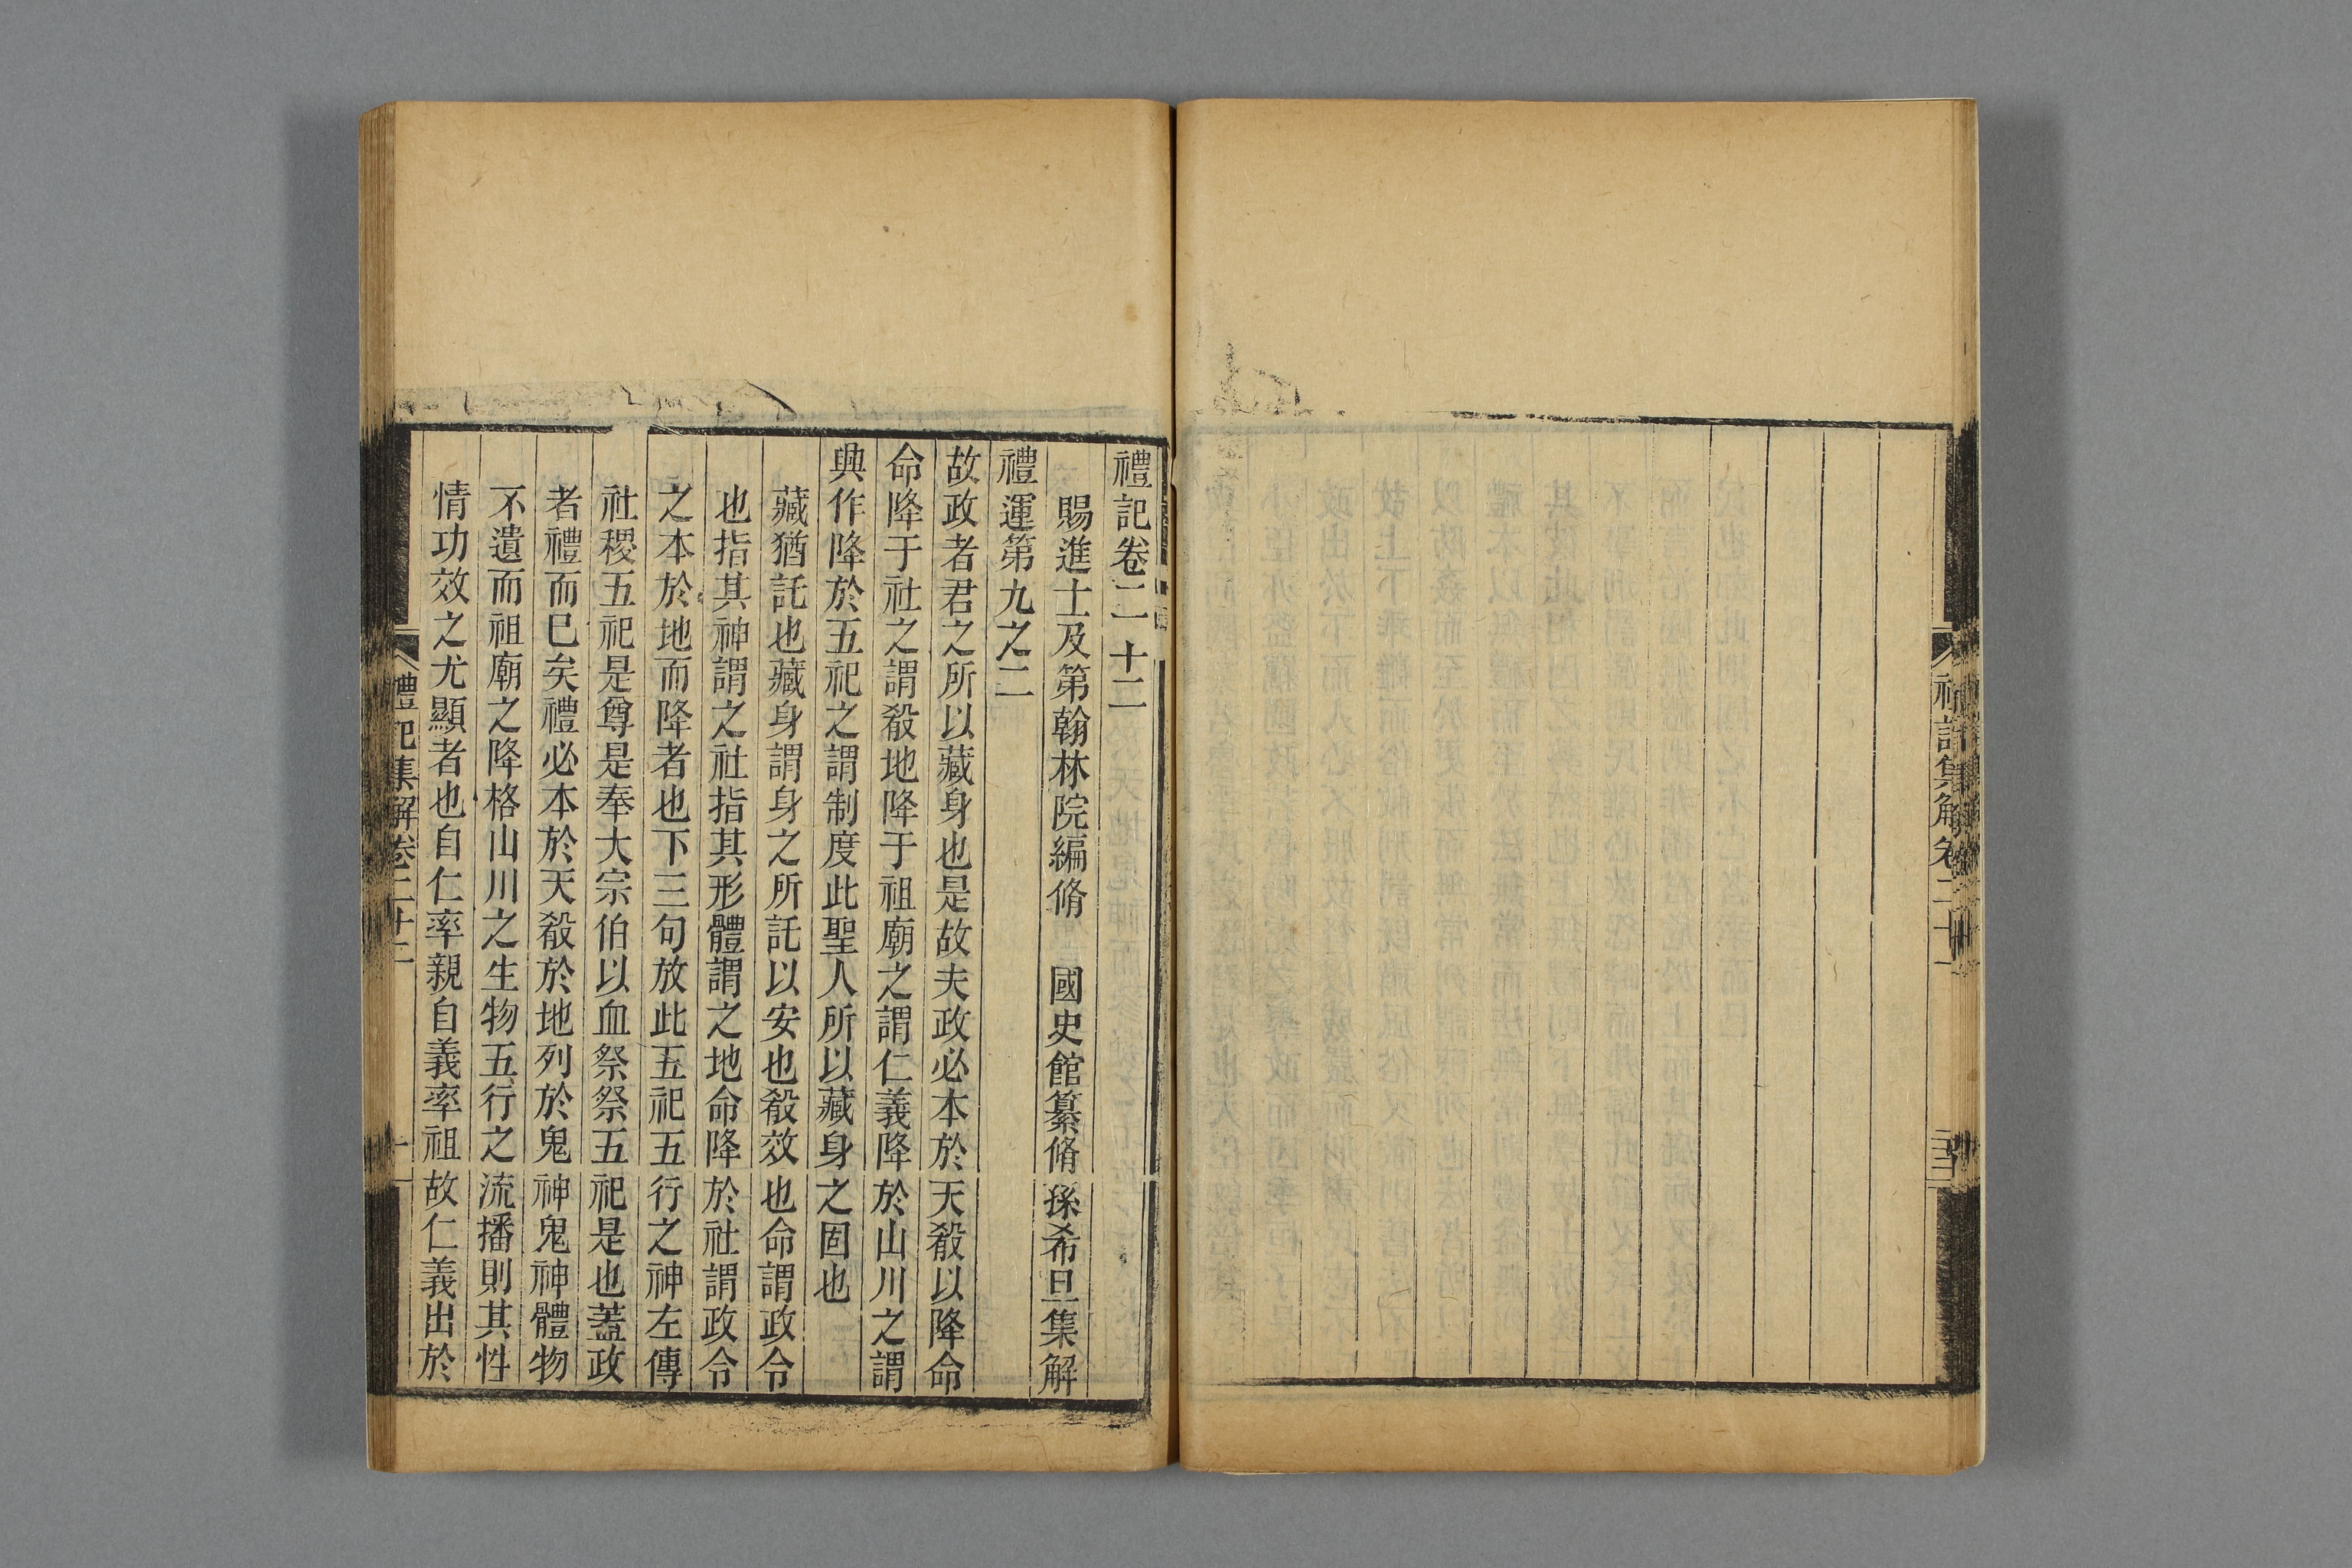 禮記集解卷二十一
禮記卷二十二
賜進士及第翰林院編脩　國史館纂脩孫希旦集解
禮運第九之二
故政者君之所以藏身也是故夫政必本於天殽以降命
命降于社之謂殽地降于祖廟之謂仁義降於山川之謂
興作降於五祀之謂制度此聖人所以藏身之固也
藏猶託也藏身謂身之所託以安也殽效也命謂政令
也指其神謂之社指其形體謂之地命降於社謂政令
之本於地而降者也下三句放此五祀五行之神左傳
社稷五祀是尊是奉大宗伯以血祭祭五祀是也蓋政
者禮而已矣禮必本於天殽於地列於鬼神鬼神體物
不遺而祖廟之降格山川之生物五行之流播則其性
情功效之尤顯者也自仁率親自義率祖故仁義出於
禮記集解卷二十二　一